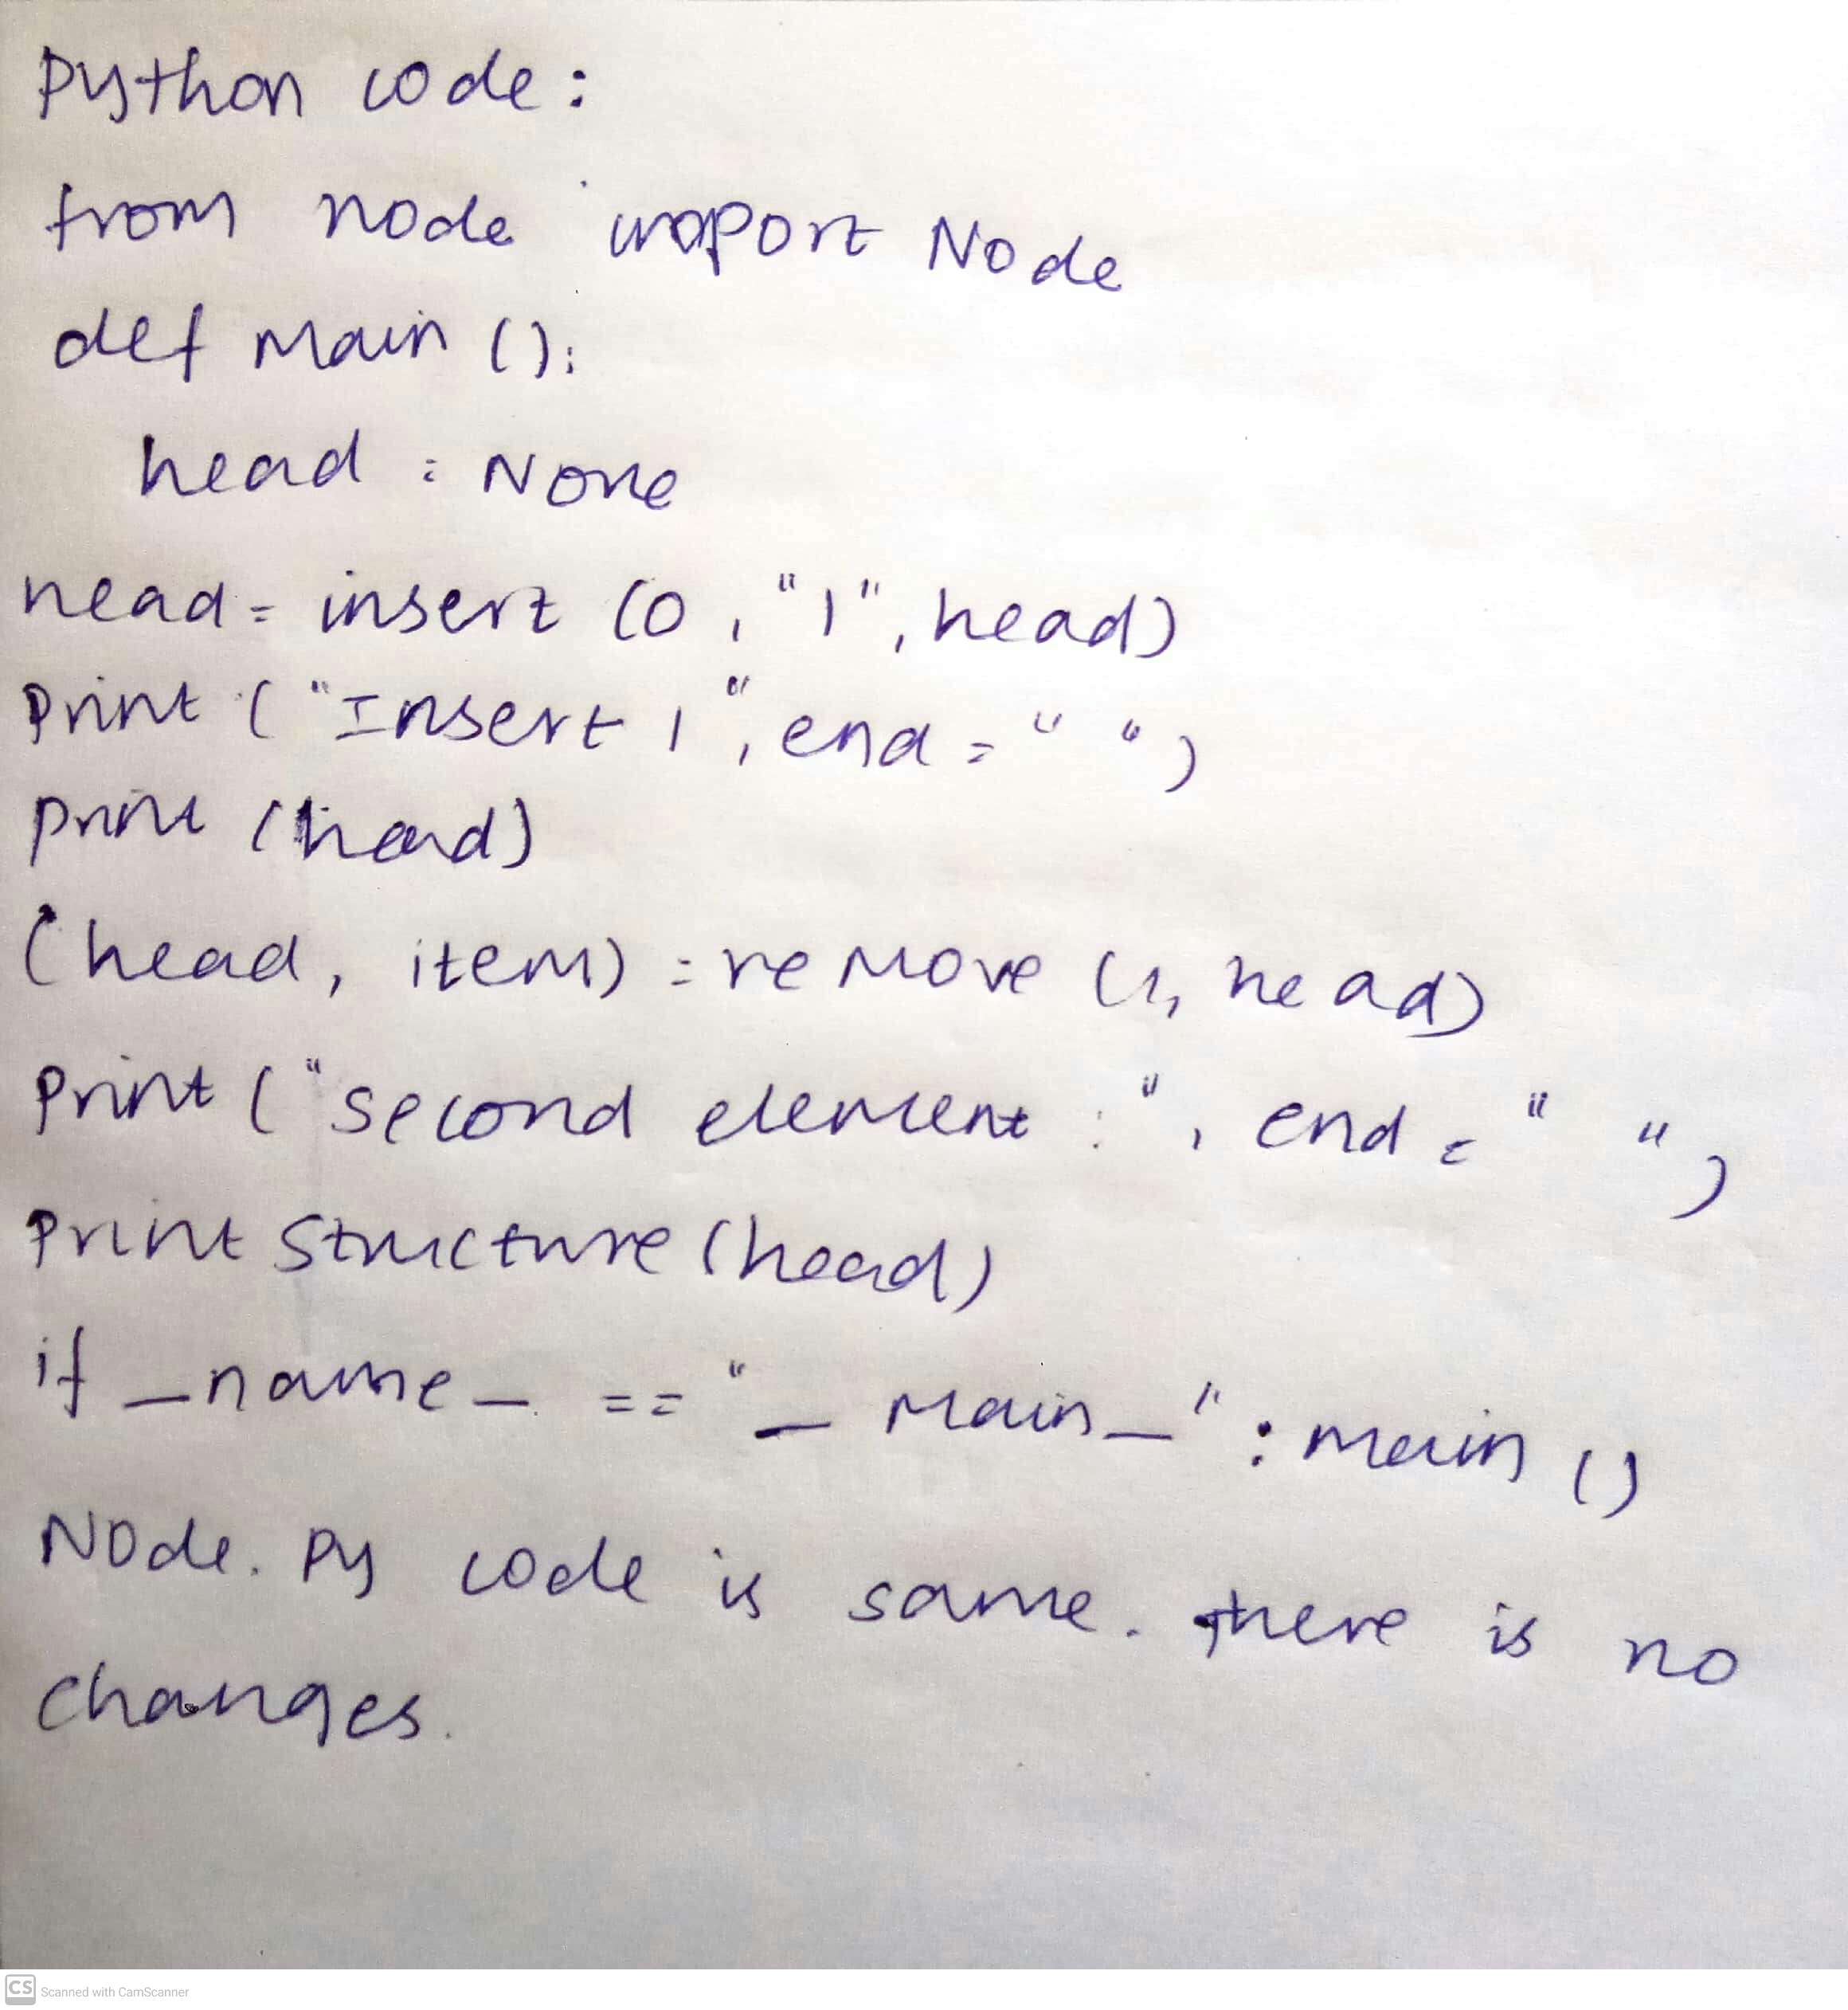 Python code:
from node import Node
def main ():
head = None
head = insert (0, "1", head)
print ("Insert 1", end = " ")
print (head)
(head, item) = remove (1, head)
print ("second element :", end = " ")
print structure (head)
if _name_ == "_main_" : main ()
Node. py code is same. there is no
changes.
CS Scanned with CamScanner